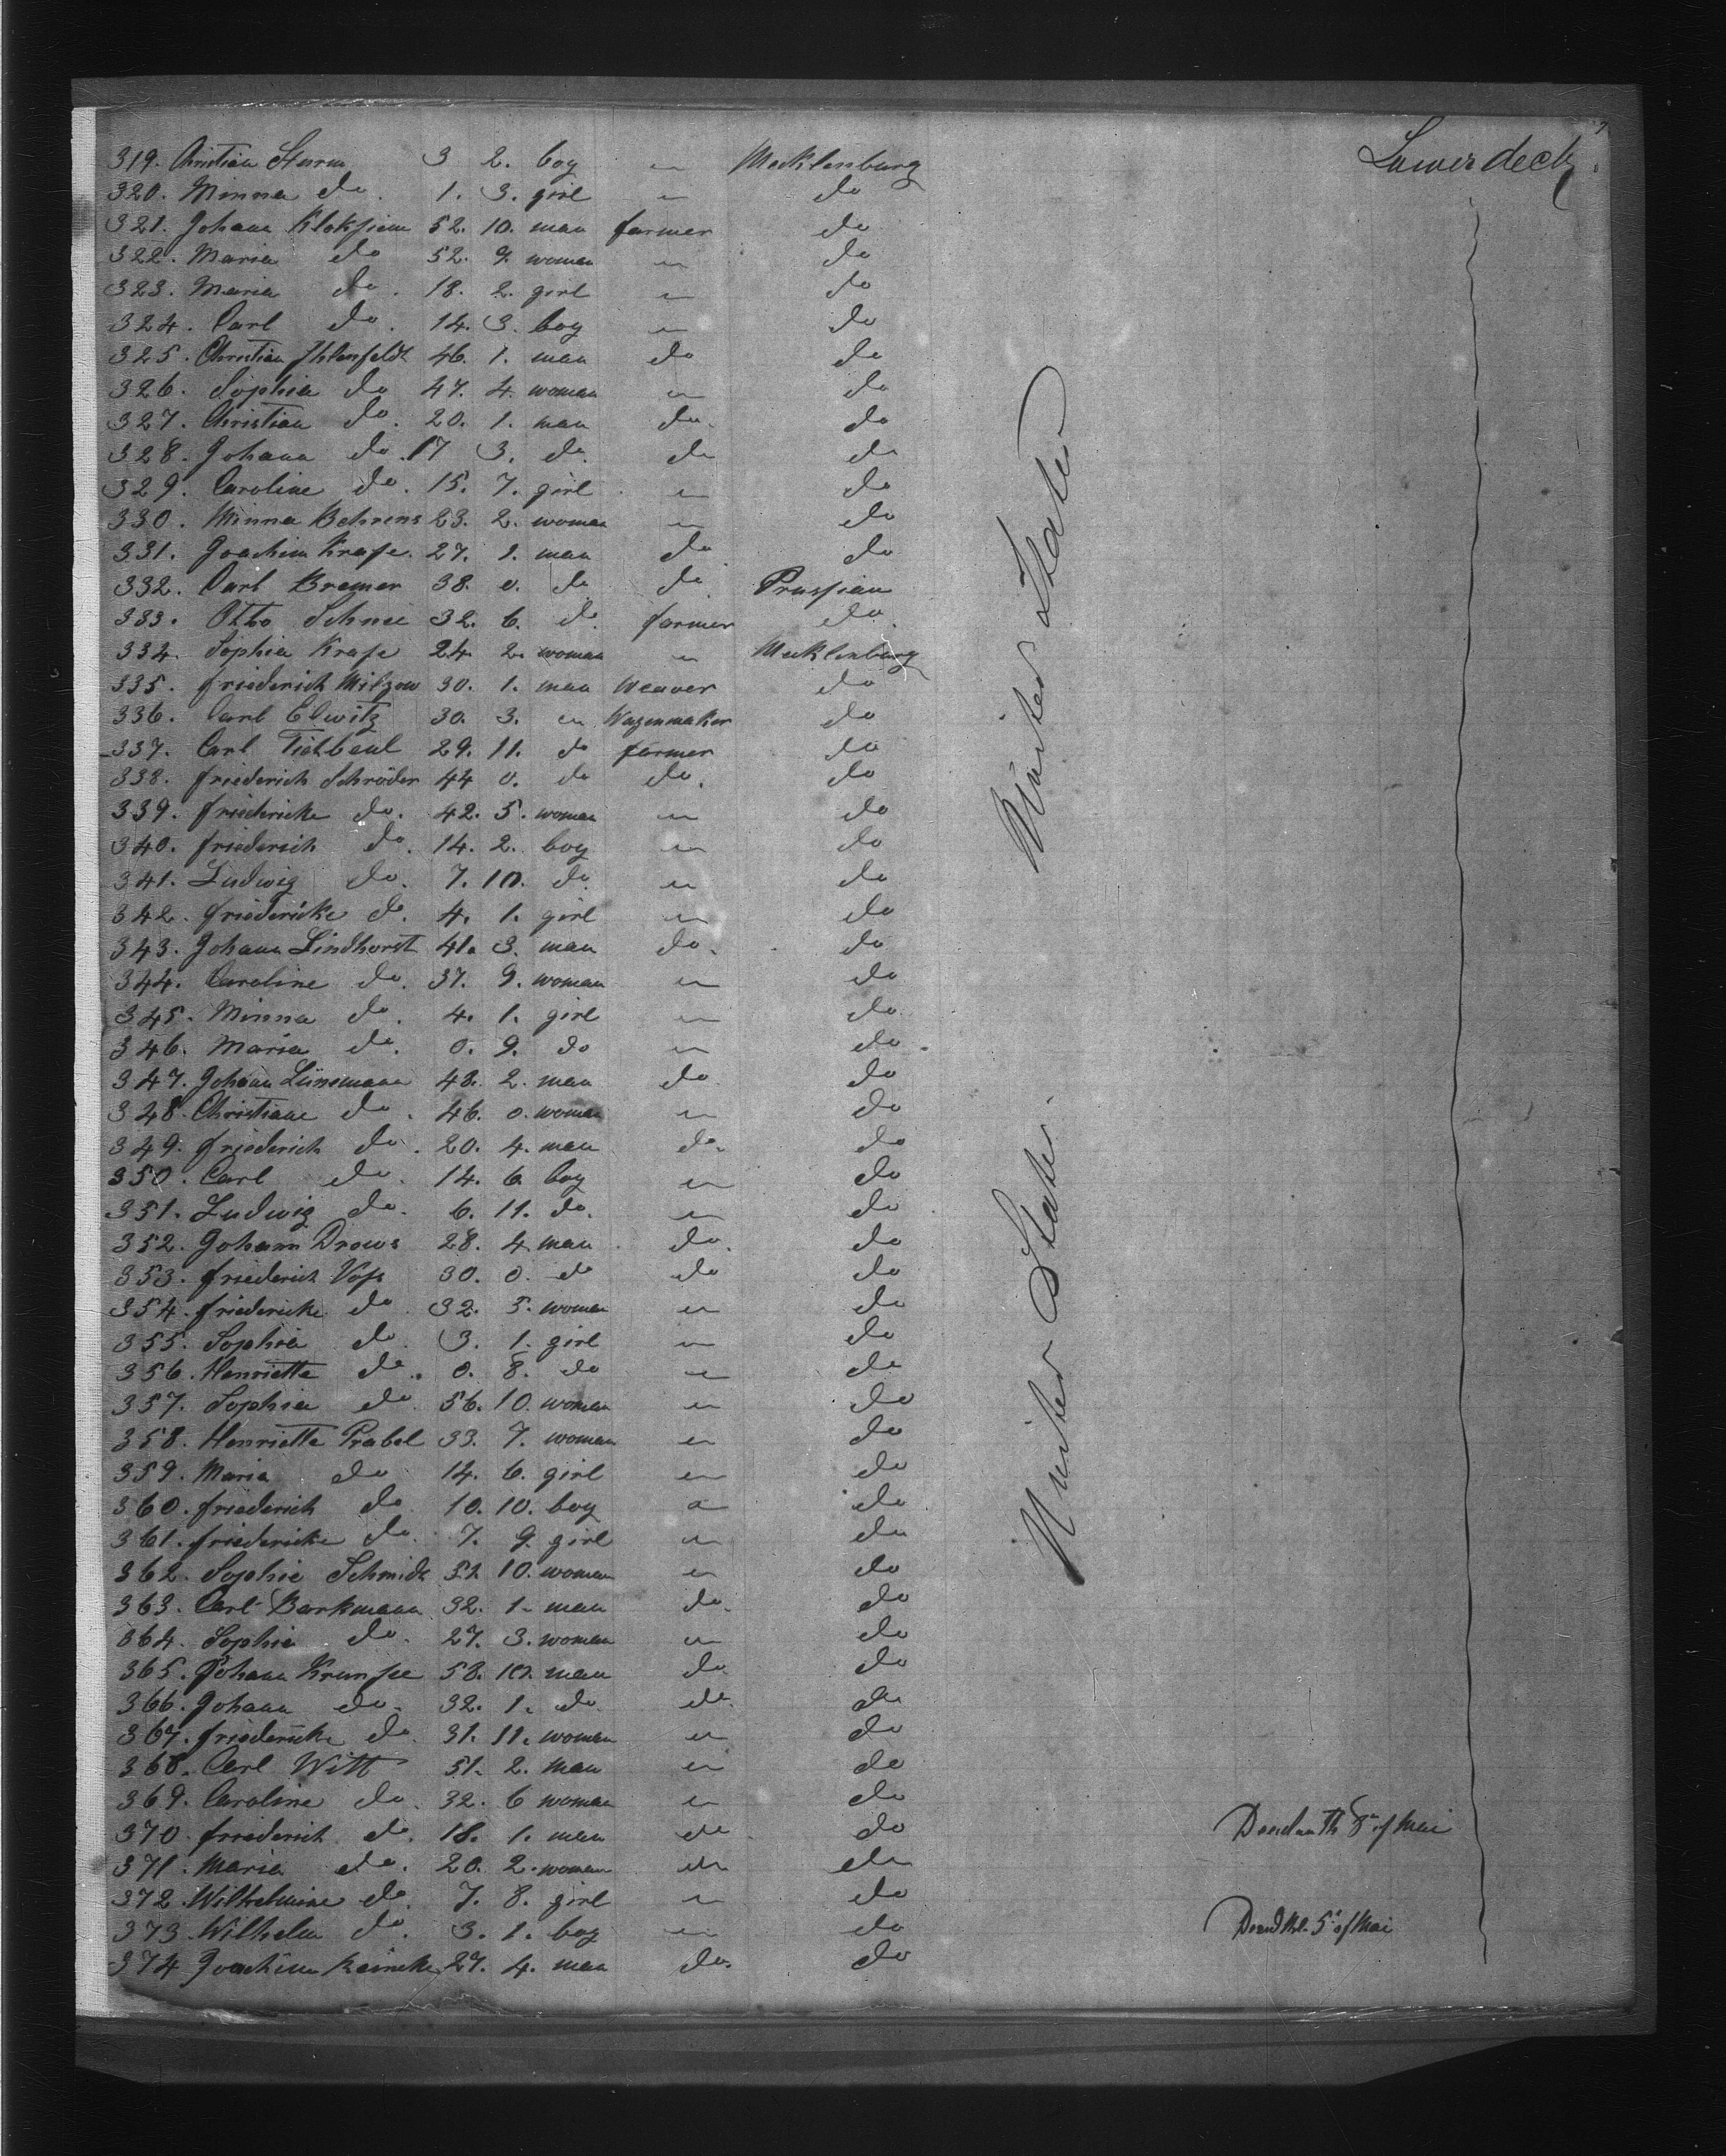 Lower deck
319. Christian Sturm 3 2. boy " Mecklenburg
320. Minna do. 1. 3. girl " do
321. Johann Kloksiem 52. 10. man farmer do
322. Maria do 52. 9. woman " do
323. Maria do. 18. 2. girl " do
324. Carl do. 14. 3. boy " do
325. Christian Ihlenfeldt 46. 1. man do do
326. Sophia do 47. 4. woman " do
327. Christian do. 20. 1. man do. do
328. Johann do. 17 3. do. do do
329. Caroline do. 15. 7. girl " do
330. Minna Behrens 23. 2. woman " do
331. Joachim Krase. 27. 1. man do do
332. Carl Bremer 38. 0. do do Prussian
333. Otto Schnee 32. 6. do. farmer do.
334. Sophia Krase 24. 2. woman " Mecklenburg
335. friederich Milzow 30. 1. man Weaver do
336. Carl Elwitz 30. 3. " Wagenmaker do
337. Carl 29. 11. do farmer do
338. friederich Schröder 44 0. do do. do
339. friedericke do. 42. 5. woman " do
340. friederich do. 14. 2. boy " do
341. Ludwig do. 7. 10. do " do
342. friedericke do. 4. 1. girl " do
343. Johann Lindhorst 41. 3. man do. do
344. Caroline do. 37. 9. woman " do
345. Minna do. 4. 1. girl " do
346. Maria do. 0. 9. do " do.
347. Johann Lünsmann 48. 2. man do do
348. Christiane do. 46. 0. woman " do
349. friederich do. 20. 4. man do. do
350. Carl do. 14. 6 boy " do
351. Ludwig do. 6. 11. do. " do
352. Johann Drews 28. 4. man do. do
353. friederich Voss 30. 0. do do do
354. friedericke do 32. 5. woman " do
355. Sophia do. 3. 1. girl " do
356. Henriette do. 0. 8. do " do
357. Sophia do. 56. 10. woman " do
358. Henriette Prabel 33. 7. woman " do
359. Maria do 14. 6. girl " do
360. friederich do 10. 10. boy " do
361. friedericke do. 7. 9. girl " do
362. Sophie Schmidt 52 10. woman " do
363. Carl Barkmann 32. 1. man do. do
364. Sophie do. 27. 3. woman " do
365. Johann Krunse 58. 10. man do do
366. Johann do. 32. 1. do do. do
367. friedericke do 31. 11. woman " do
368. Carl Witt 51. 2. man " do
369. Caroline do. 32. 6 woman " do
370. friederich do. 18. 1. man do do 8th of Mai
371. Maria do. 20. 2. woman do do
372. Wilhelmine do. 7. 8. girl " do
373. Wilhelm do. 3. 1. boy " do 5th of Mai
374 Joachim Reincke 27. 4. man do. do
United States
United States.